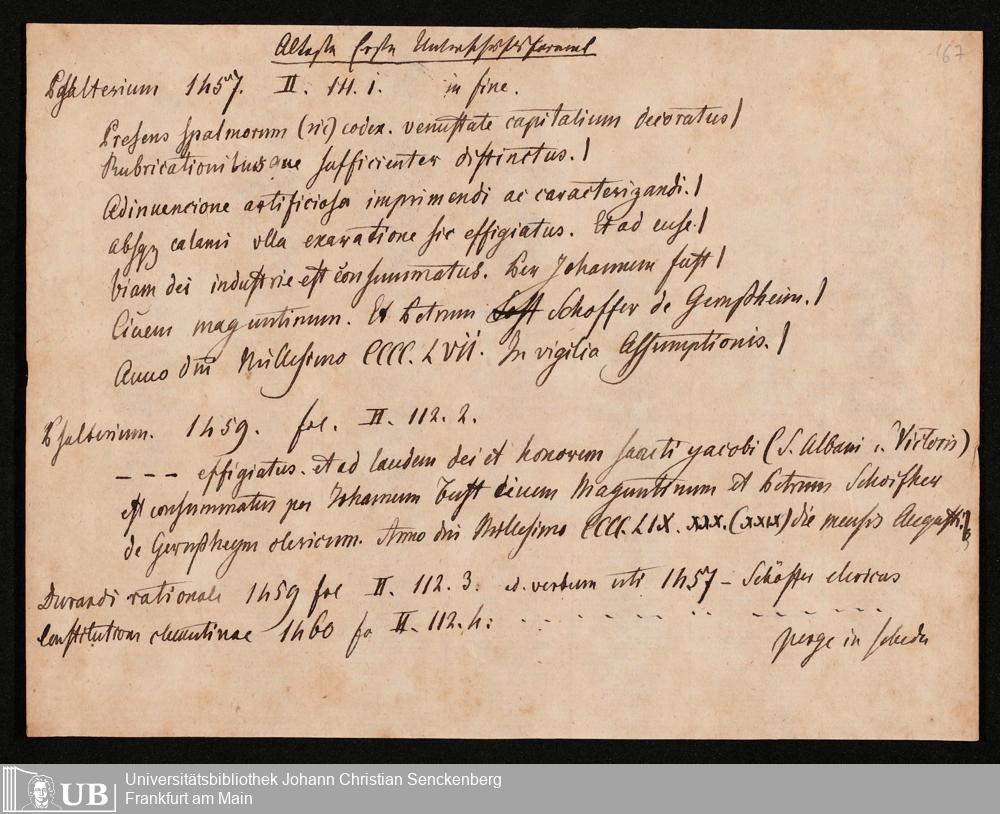 Älteste Erste Unterschriftsformel
167
Psalterium 1457. II. 111. 1. in fine.
Presens spalmorum (sic) codex. venustate capitalium decoratus /
Rubricationibusque sufficienter distinctus. /
Adinuencione artificiosa imprimendi ac caracterizandi. /
absqȝ calami vlla exaratione sic effigiatus. Et ad euse /
biam dei industrie est consummatus. Per Johannem fust /
Ciuem maguntinum. Et Petrum Schoffer de Gernßheim. /
Anno dni Millesimo CCCC. LVII. In vigilia Assumptionis. /
Psalterium. 1459. fol. II. 112. 2.
- - - effigiatus. et ad laudem dei et honorem sancti jacobi (S. Albani u. Victoris)
est consummatus per Johannem Fust ciuem Maguntinum et Petrum Schoifher
de Gernßheym clericum. Anno dni Millesimo CCCC. LIX. XXX. (XXIX) die mensis Augusti.
Durandi rationale 1459 fol II. 112. 3. ad verbum uti 1457 – Schöffer clericus
Constitutiones clementinae 1460 fo II. 112. 4:
perge in scheda
UB Universitätsbibliothek Johann Christian Senckenberg
Frankfurt am Main